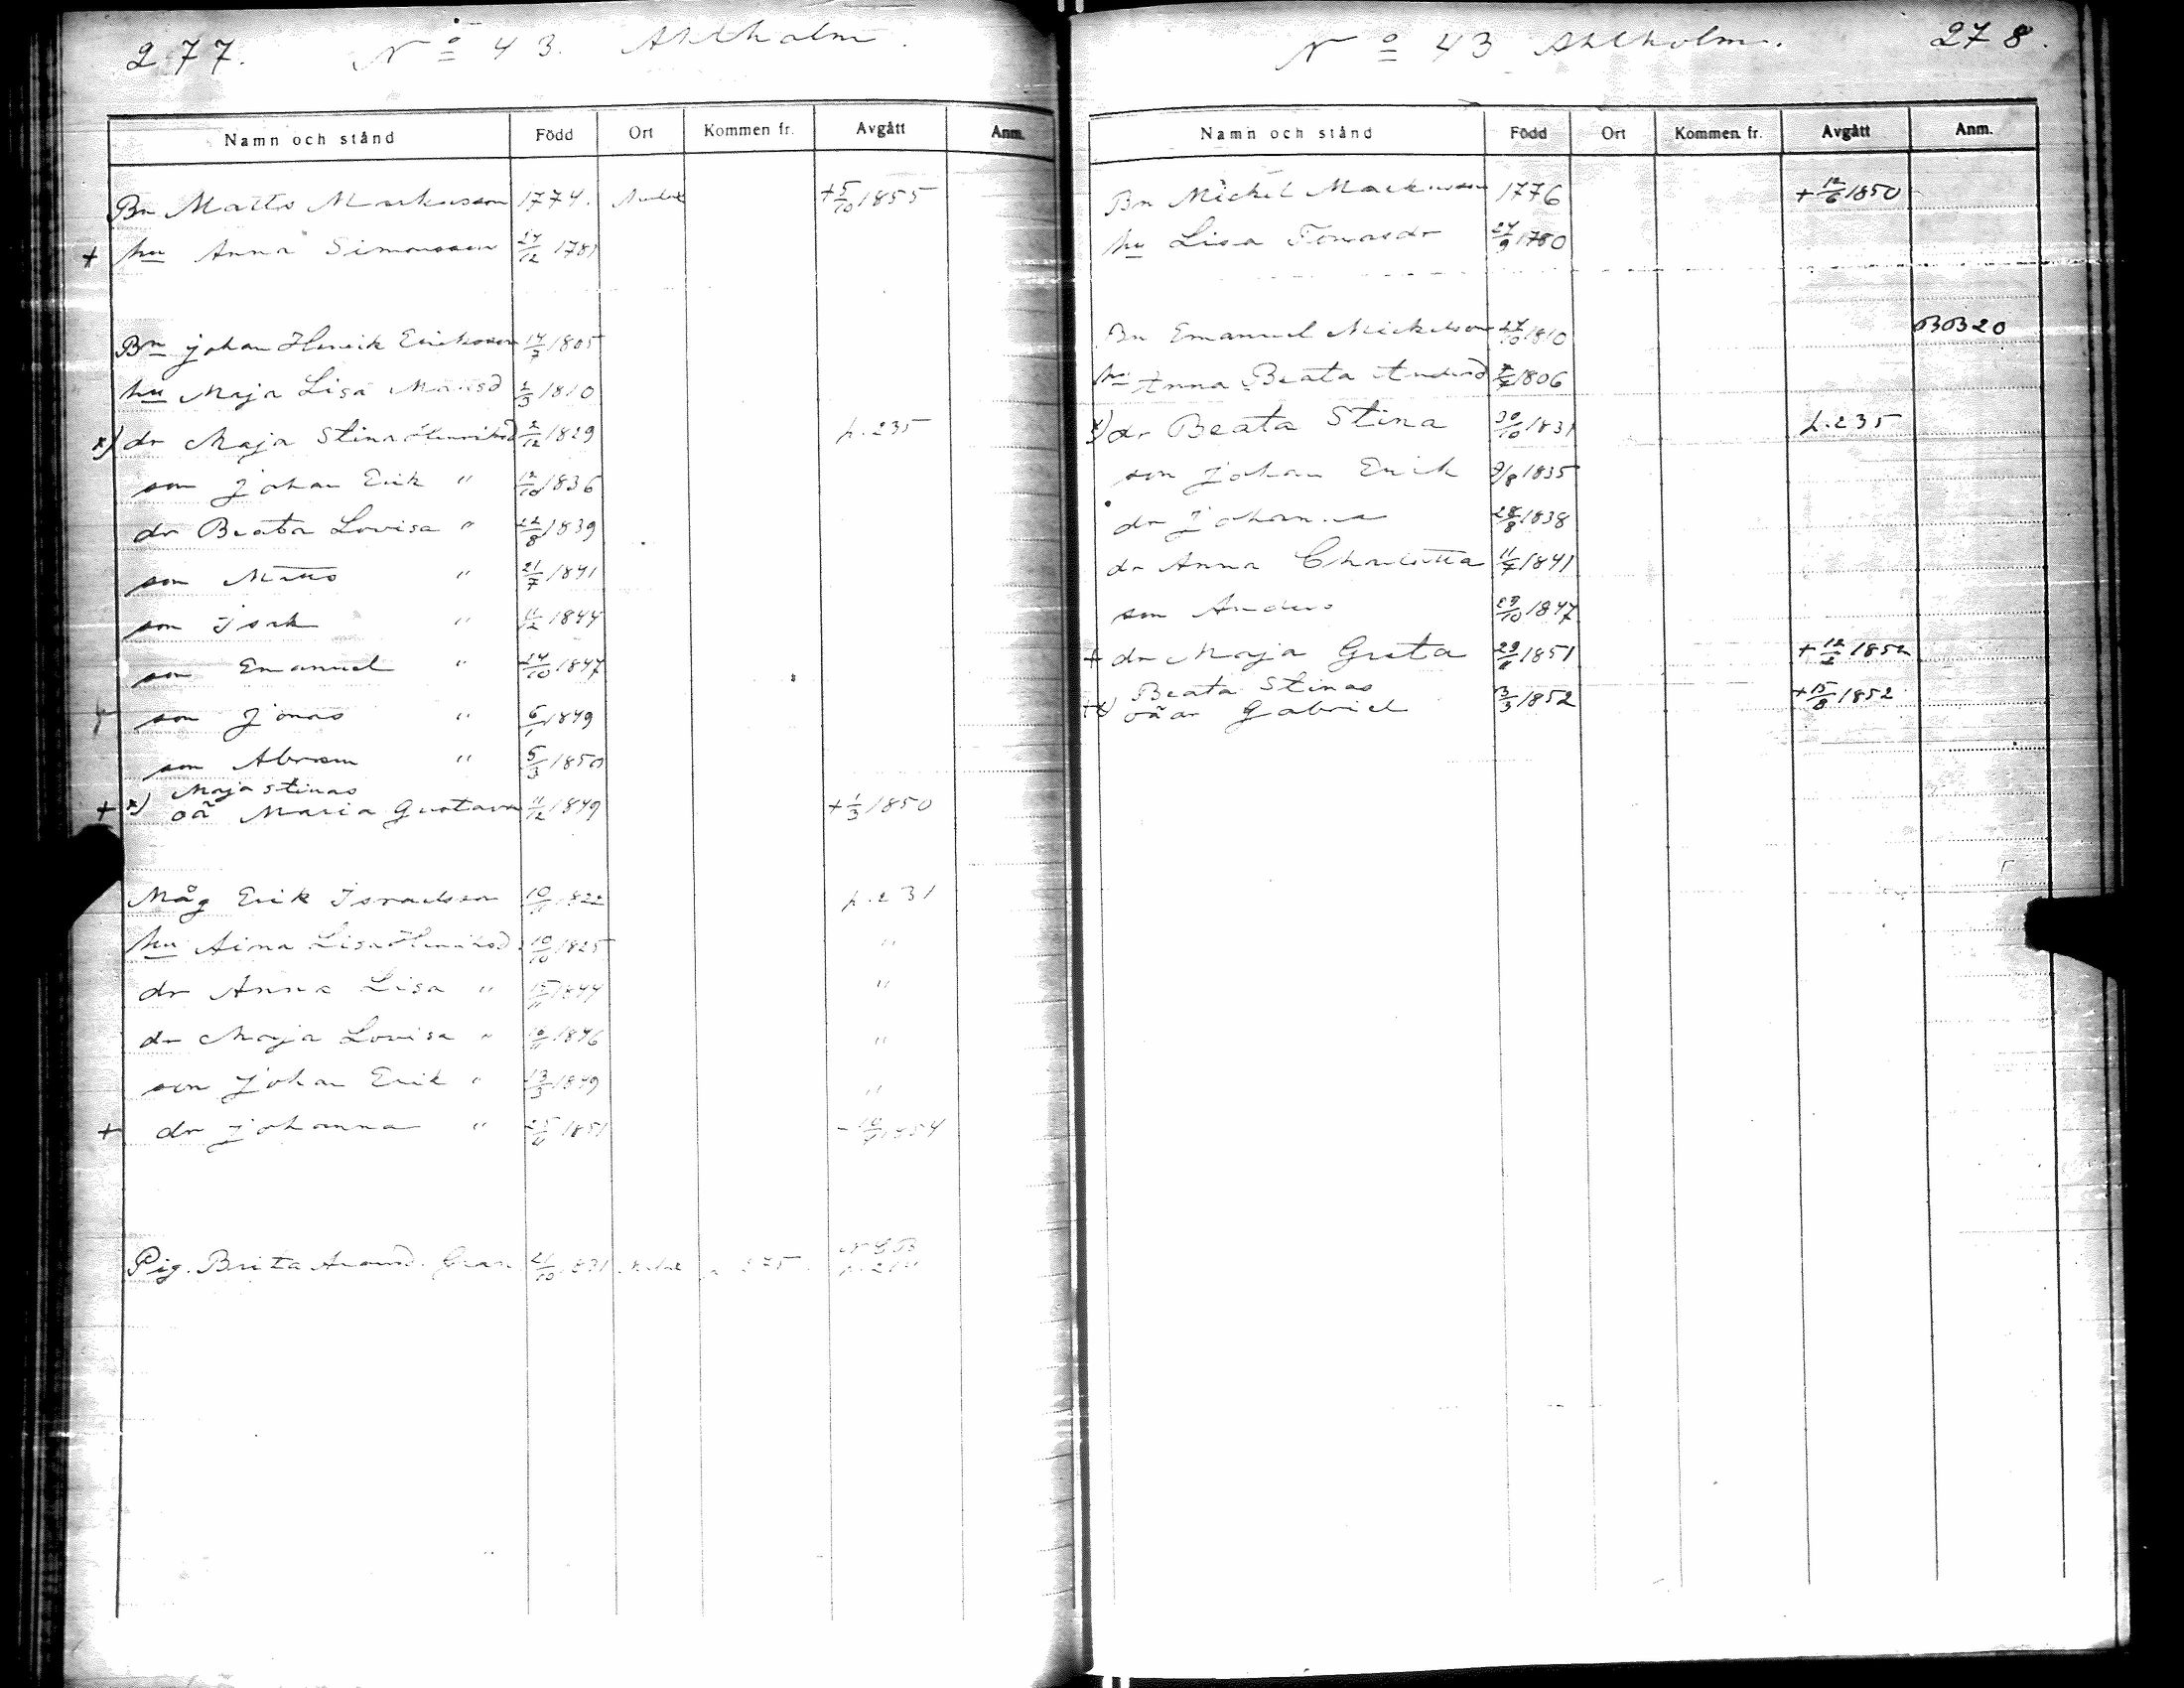 277. No 43. Ahlholm.
Namn och stånd Född Ort Kommen fr. Avgått Anm.
Bn Matts Markusson 1774. + 5/10 1855
+ hu Anna Simonsson 27/12 1781
Bn Johan Henrik Eriksson 14/7 1805
hu Maja Lisa Mattsd 2/3 1810
x) dr Maja Stina Henriksd 2/12 1829 p. 235
son Johan Erik " 12/10 1836
dr Beata Lovisa " 22/8 1839
son Matts " 21/7 1841
son Isak " 11/12 1844
son Emanuel " 24/10 1847
son Jonas " 6/1 1849
son Abram " 5/3 1850
Maja Stinas
+ x) oä Maria Gustava 11/12 1849 + 1/3 1850
Måg Erik Israelsson 10/11 1822 p. 231
hu Lisa Henriksd 10/10 1825 "
dr Anna Lisa " 1844 "
dr Maja Lovisa " 1846 "
son Johan Erik " 13/3 1849 "
+ dr Johanna " 1851 1854
Pig. Brita 1831
No 43 Ahlholm. 278.
Namn och stånd Född Ort Kommen fr. Avgått Anm.
Bn Mickel Markusson 1776 + 12/6 1850
hu Lisa Tomasdr 24/9 1780
Bn Emanuel Mickelsson 27/10 1810 BB20
hu Anna Beata Andersd 1806
x) dr Beata Stina 30/10 1831 p. 235
son Johan Erik 9/8 1835
dr Johanna 28/8 1838
dr Anna Charlotta 1841
son Anders 29/10 1847
+ dr Maja Greta 1851 + 1852
Beata Stinas
+x) oä Gabriel 3/3 1852 + 15/8 1852